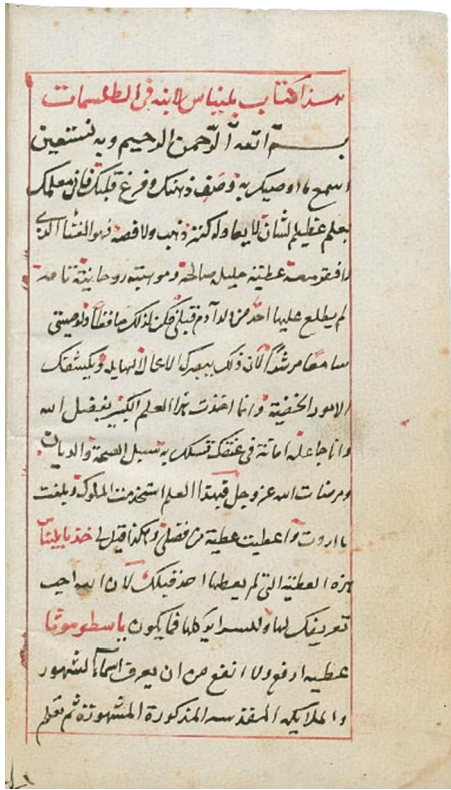 هذا كتاب بلنياس لابنه في الطلسمات
بسم الله الرحمن الرحيم وبه نستعين
اسمع ما اوصيك به وصف ذهنك وفرغ قلبك فاني معلمك
بعلم عظيم الشان لا يعادله كنز ذهب ولا فضه فهو الغنا الذي
لا فقر معه عطية جليل صالحة وموهبة روحانية تامة
لم يطلع عليها احد من ولد آدم قبلي فكن لذلك حافظا ولوصيتي
سامعا مرشدا لان ذلك يبصرك الاعمال الهايله ويكشف لك
الامور الخفية وانا اخذت هذا العلم الكبير بفضل الله
وانا جاعله امانة في عنقك تمسك به سبيل الصحة والديان
ومرضات الله عز وجل فبهذا العلم استخدمت الملوك وبلغت
ما اردت واعطيت عطية من فضلي وهكذا قيل لي خذ يا بلينا
هذه العطية التي لم يعطها احد قبلك لان الله احب
تعريفك لها وللسراير كلها فما يكون يا سطوموثا
عطيه ارفع ولا انفع من ان يعرف اسماء الشهور
والملايكه المقدسه المذكورة المشهورة ثم تعلم